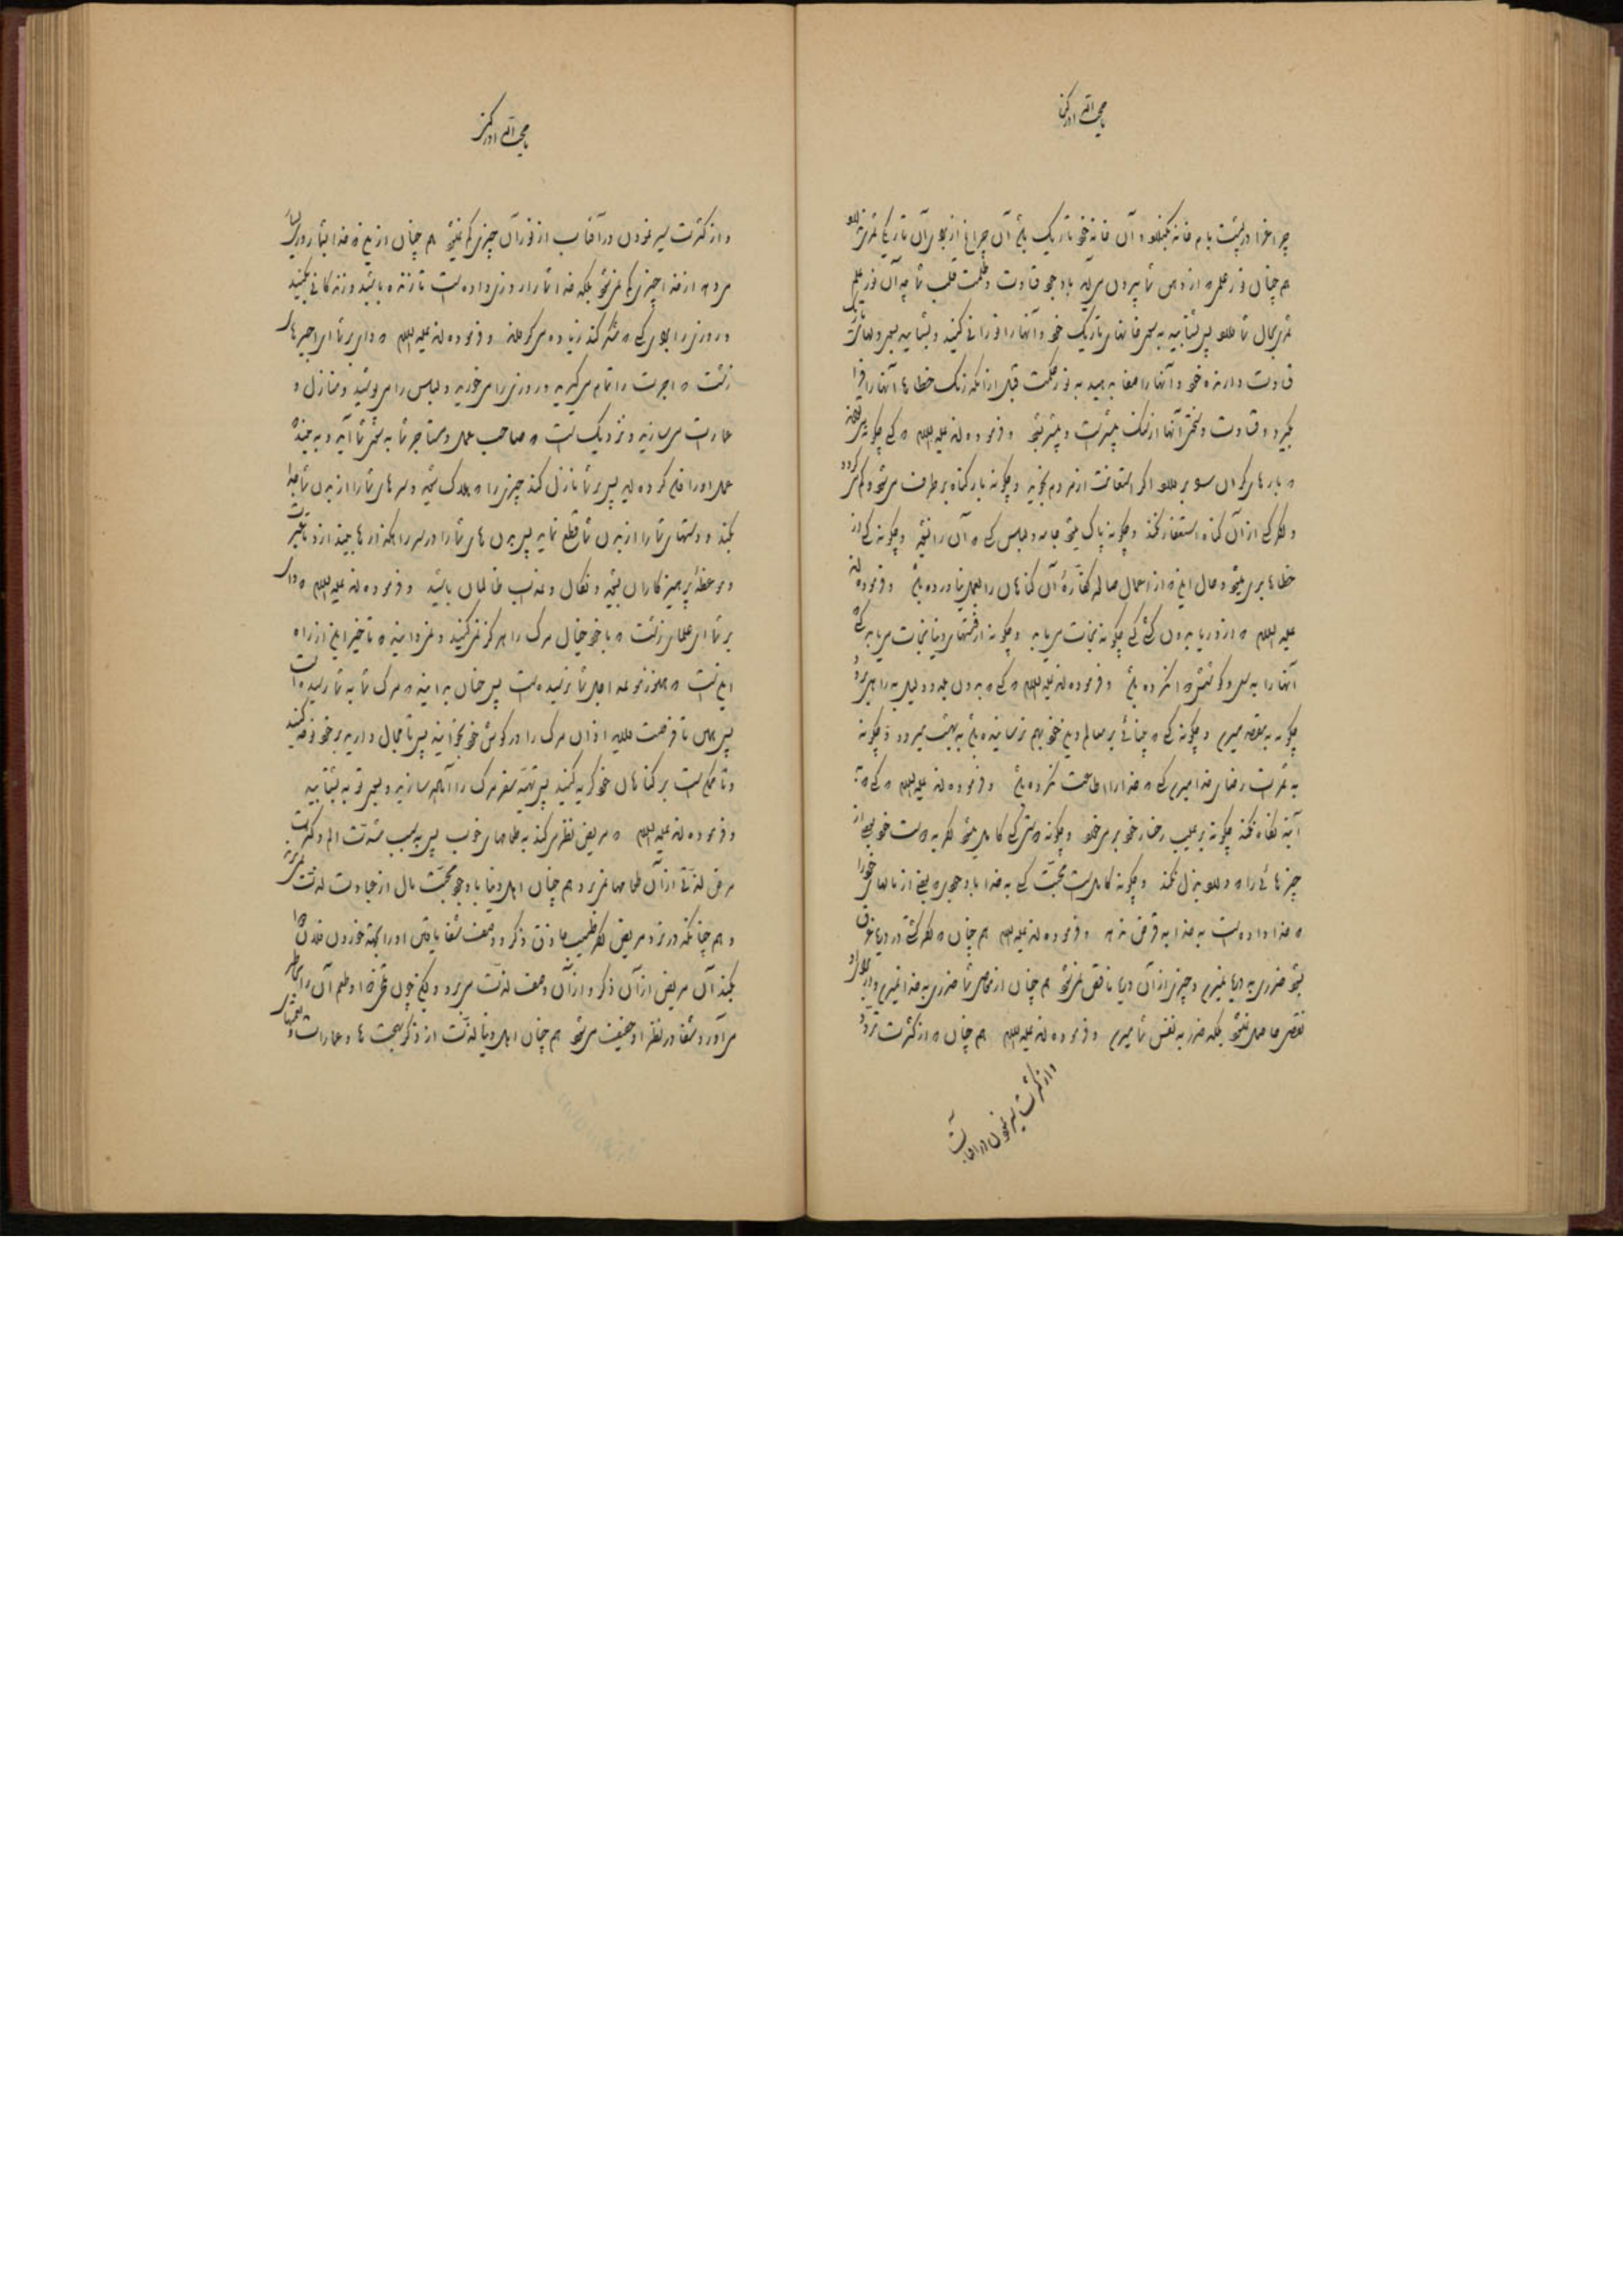 چراغ را در پشت بام خانه و آن خانه خود تاریک باشد آن چراغ از برای آن تاریکی
هم چنان نور علم که از دهن شما بیرون می‌آید با وجود قساوت و ظلمت قلب شما چه آن نور علم
پس بشتابید به سوی خانهای تاریک خود و آنها را نورانی کنید و بشتابید بسوی دلهای
قساوت دارنده خود و آنها را صفا بدهید به نور حکمت قبل از آنکه زنگ خطاها آنها را فرا
بگیرد و قساوت و سختی آنها از سنگ بیشتر و فرموده‌اند علیه السلام که کسی چگونه
که بارهای گران اگر استعانت از مردم نجوید و چگونه بار گناه بر طرف می‌شود
از آن گناه استغفار نکند و چگونه پاک می‌شود جامه و لباس کسی که آن را نشوید و چگونه کسی از
خطاها بری می‌شود و حال این که از اعمال صالحه کفارهٔ آن گناهان را بعمل نیاورده باشد و فرموده‌اند
علیه السلام که از دریا بدون کشتی کسی چگونه نجات می‌یابد و چگونه از فتنهای دنیا نجات می‌یابد کسی که
آنها را به سعی و کوشش نکرده باشد و فرموده‌اند علیه السلام که کسی که بدون بلد و دلیل به راهی برود
چگونه به مقصد میرسد و چگونه کسی که بر معالم دین خود بهم نرسانیده باشد به بهشت میرود و چگونه
به رضای خدا میرسد کسی که خدا را اطاعت نکرده باشد و فرموده‌اند علیه السلام کسی که به
آینه نگاه نکند چگونه بر عیب رخسار خود بر می‌خورد و چگونه دوستی کسی کامل می‌شود که به دوست خود بعضی از
چیزهائی را که دارد بذل نکند و چگونه کامل است محبت کسی به خدا با وجودی که بعضی از مالهای خود را
که خدا داده است به خدا به قرض ندهد و فرموده‌اند علیه السلام هم چنان که اگر کشتی در دریا غرق
بشود ضرری به دریا نمیرسد و چیزی از آن دریا ناقص نمی‌شود هم چنان از معاصی شما ضرری به خدا نمیرسد و
نقصی حاصل نمی‌شود بلکه ضرر به نفس شما میرسد و فرموده‌اند علیه السلام هم چنان که از کثرت تردد
و از کثرت سیر نمودن در آفتاب
و از کثرت سیر نمودن در آفتاب از نور آن چیزی کم نمی‌شود هم چنان از این که خدا بشما روزی بسیار
می‌دهد از خدا چیزی کم نمی‌شود بلکه خدا شما را روزی داده است تا زنده باشید و زندگانی بکنید
و روزی را برای کسی که شکر کند زیاده می‌گرداند و فرموده‌اند علیه السلام که وای بر شما ای اجیرهای
زشت که اجرت را تمام می‌گیرید و روزی را می‌خورید و لباس را می‌پوشید و منازل و
عمارت می‌سازید و نزدیک است که صاحب عمل و مستاجر شما به سوی شما آید و به بیند
عمل او را ضایع کرده‌اید پس بر شما نازل کند چیزی را که هلاک شوید و سرهای شما را از بدن شما جدا
بکند و دستهای شما را از بدن شما قطع نماید پس بدن‌های شما را در سر راه بگذارد
و موعظهٔ پرهیزکاران بشوید و نکال و عذاب ظالمان باشید و فرموده‌اند علیه السلام که وای
بر شما ای علمای زشت که با خود خیال مرگ را هرگز نمی‌کنید و نمی‌دانید که تاخیر این از راه
این است که هنوز موعد اجل شما نرسیده است پس چنان بدانید که مرگ شما به شما رسیده است
پس همین تا فرصت دارید اذان مرگ را در گوش خود بخوانید پس تا مجال دارید بر خود نوحه کنید
و تا ممکن است بر گناهان خود گریه کنید پس تهیه سفر مرگ را آماده سازید و بسوی توبه بشتابید
و فرموده‌اند علیه السلام که مریض نظر می‌کند به طعامهای خوب پس به سبب شدت الم و کثرت
مرض لذتی از آن طعامها نمی‌برد هم چنان اهل دنیا با وجود محبت مال از عبادت لذت نمی‌برند
و هم چنانکه در نزد مریض اگر طبیب حاذق ذکر و وصف شفا یافتن او را بجهة خوردن فلان دوا
بکند آن مریض از آن ذکر و از آن وصف لذت می‌برد و لیکن چون تلخی دوا و طعم آن را بخاطر
می‌آورد شفا در نظر او خفیف می‌شود هم چنان اهل دنیا لذت از ذکر بهجت‌ها و عمارات